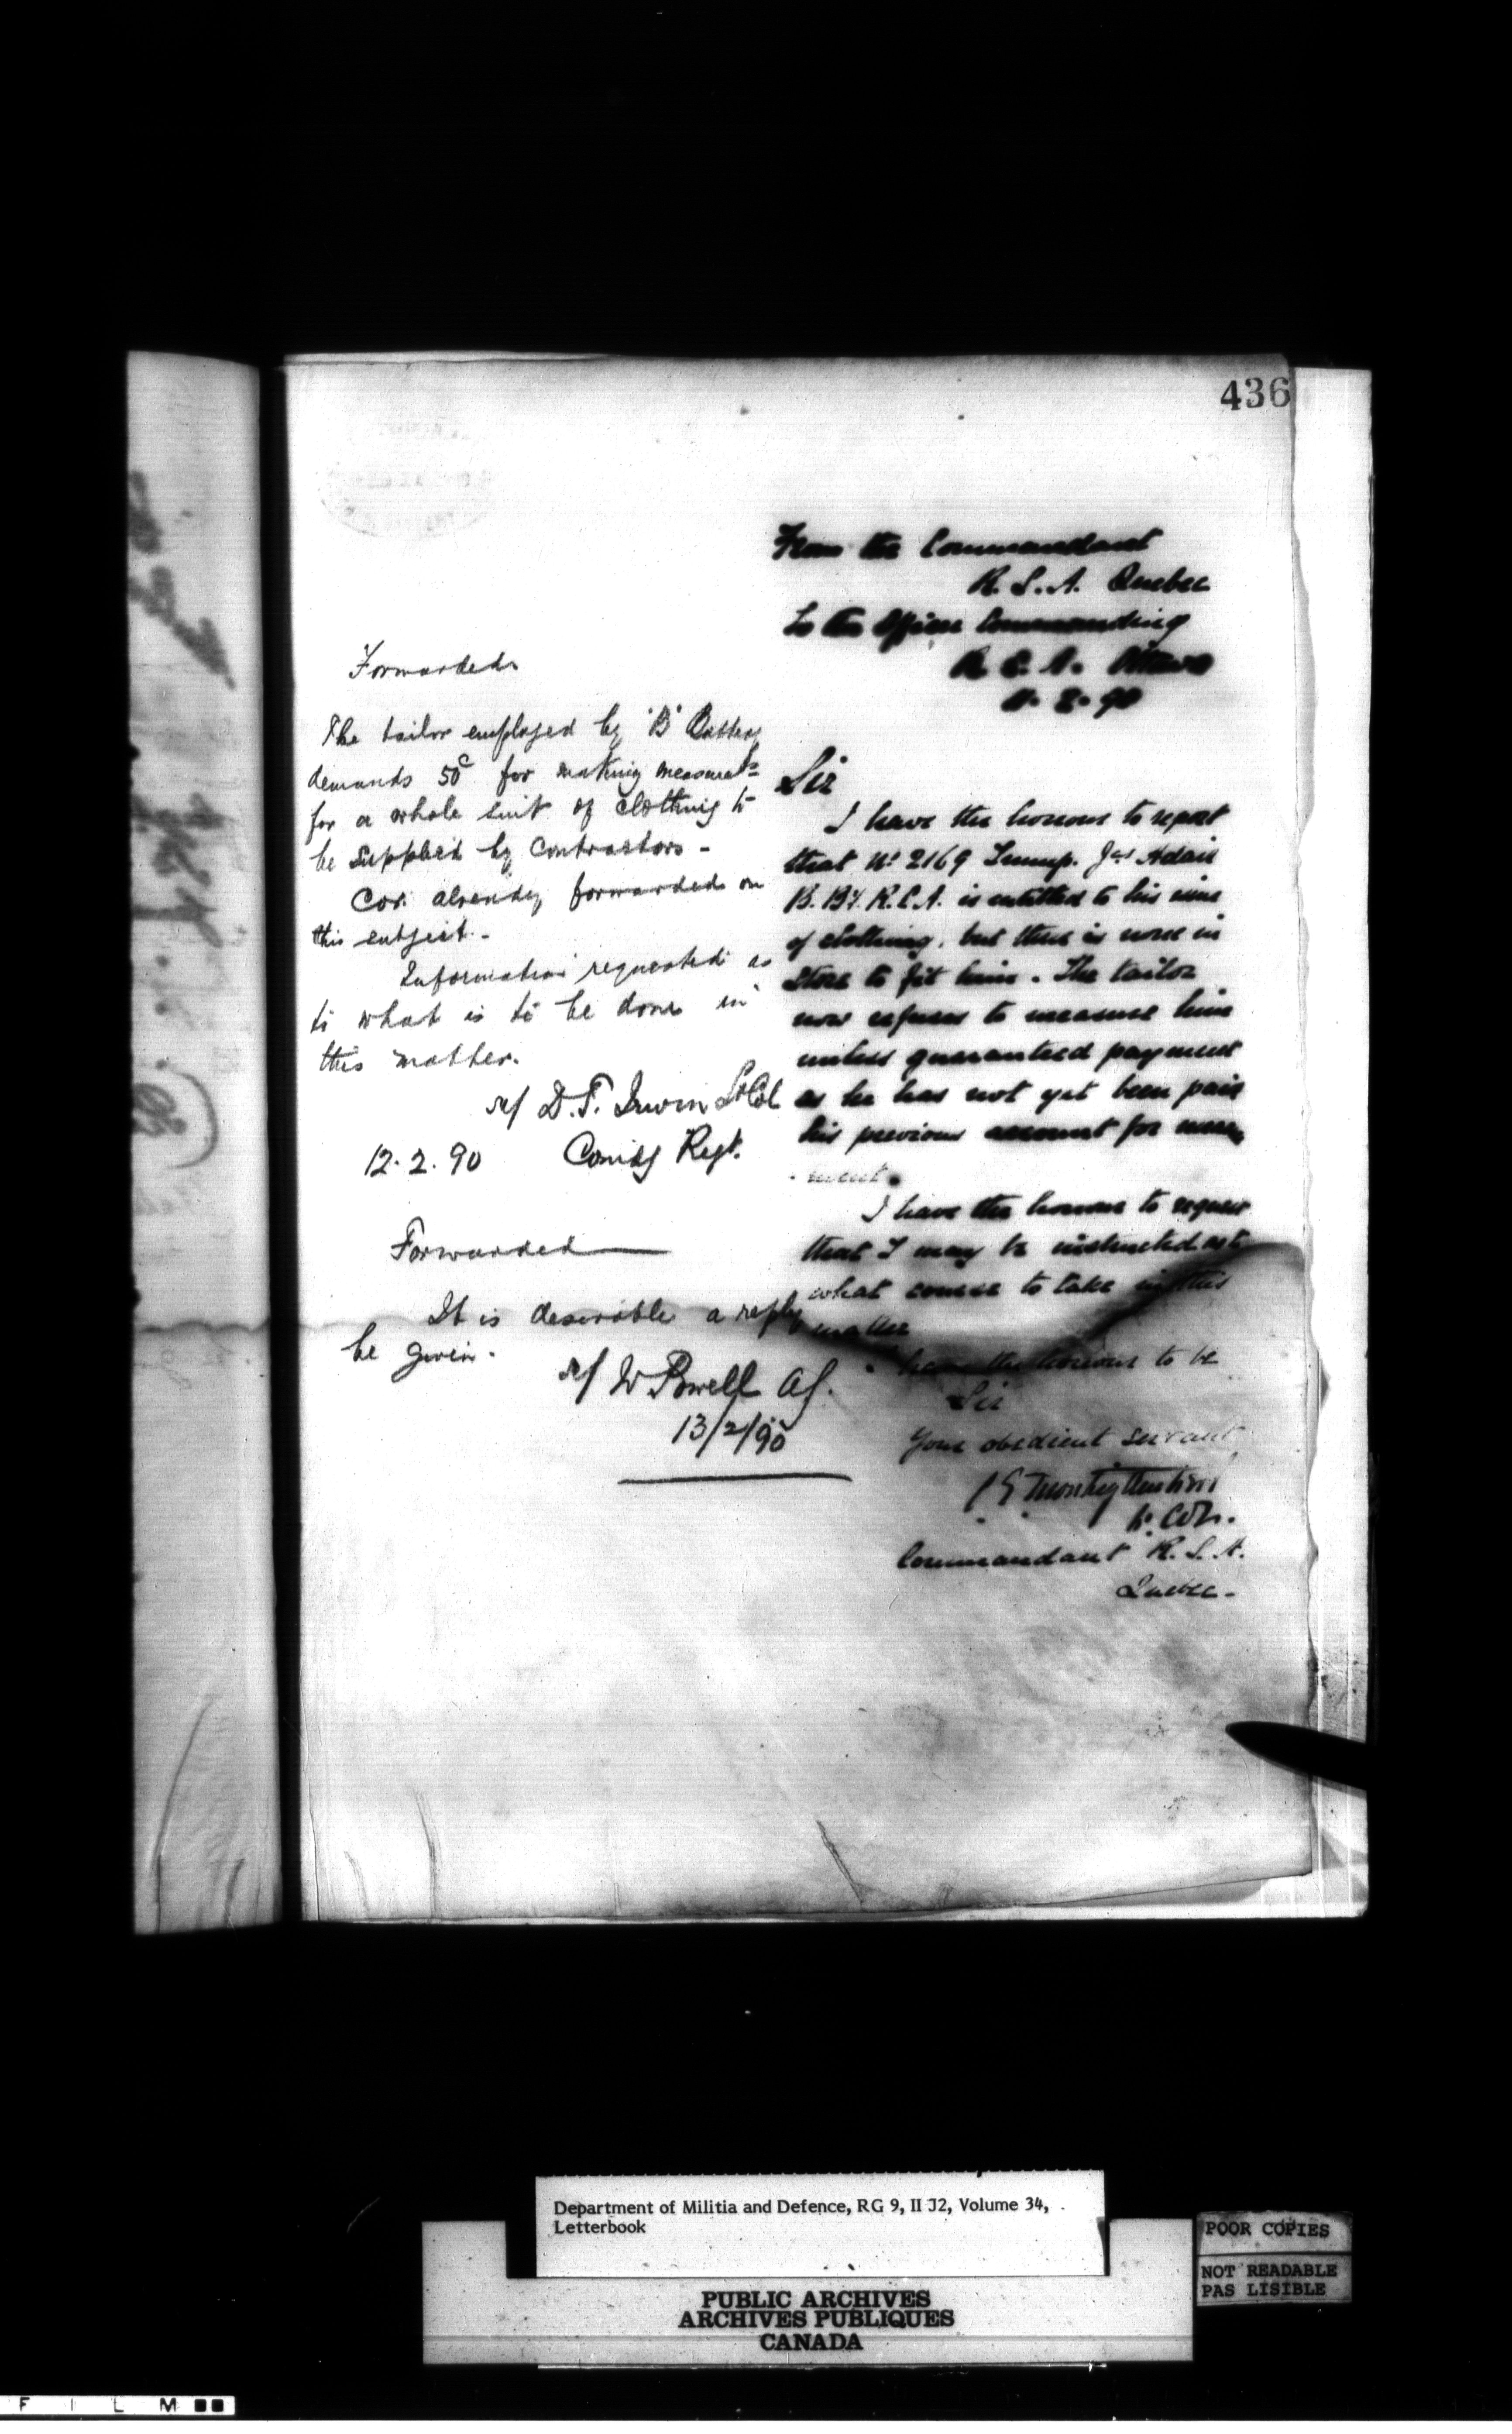 436
From the Commandant
R. S. A. Quebec
To the Officer Commanding
R. C. A. Ottawa
11. 2. 90
Sir
I have the honour to report
that No 2169 Trump. Jas Adair
B. By. R.C.A. is entitled to his
of clothing, but there is none in
store to fit him. The tailor
now refuses to measure him
unless guaranteed payment
as he has not yet been paid
his previous account for
I have the honour to request
that I may be instructed as to
what course to take in this
matter
I have the honour to be
Sir
Your obedient servant
Lt. Col.
Commandant R. S. A.
Quebec -
Forwarded
The tailor employed by "B" Battery
demands 50c for making measurets
for a whole suit of clothing to
be supplied by Contractors -
Cor. already forwarded on
this subject. -
Information requested as
to what is to be done in
this matter.
D. T. Irwin Lt Col
12. 2. 90 Comdg Regt.
Forwarded
It is desirable a reply
be given.
W Powell AG.
13/2/90
Department of Militia and Defence, RG 9, II J2, Volume 34,
Letterbook
PUBLIC ARCHIVES
ARCHIVES PUBLIQUES
CANADA
POOR COPIES
NOT READABLE
PAS LISIBLE
F I L M